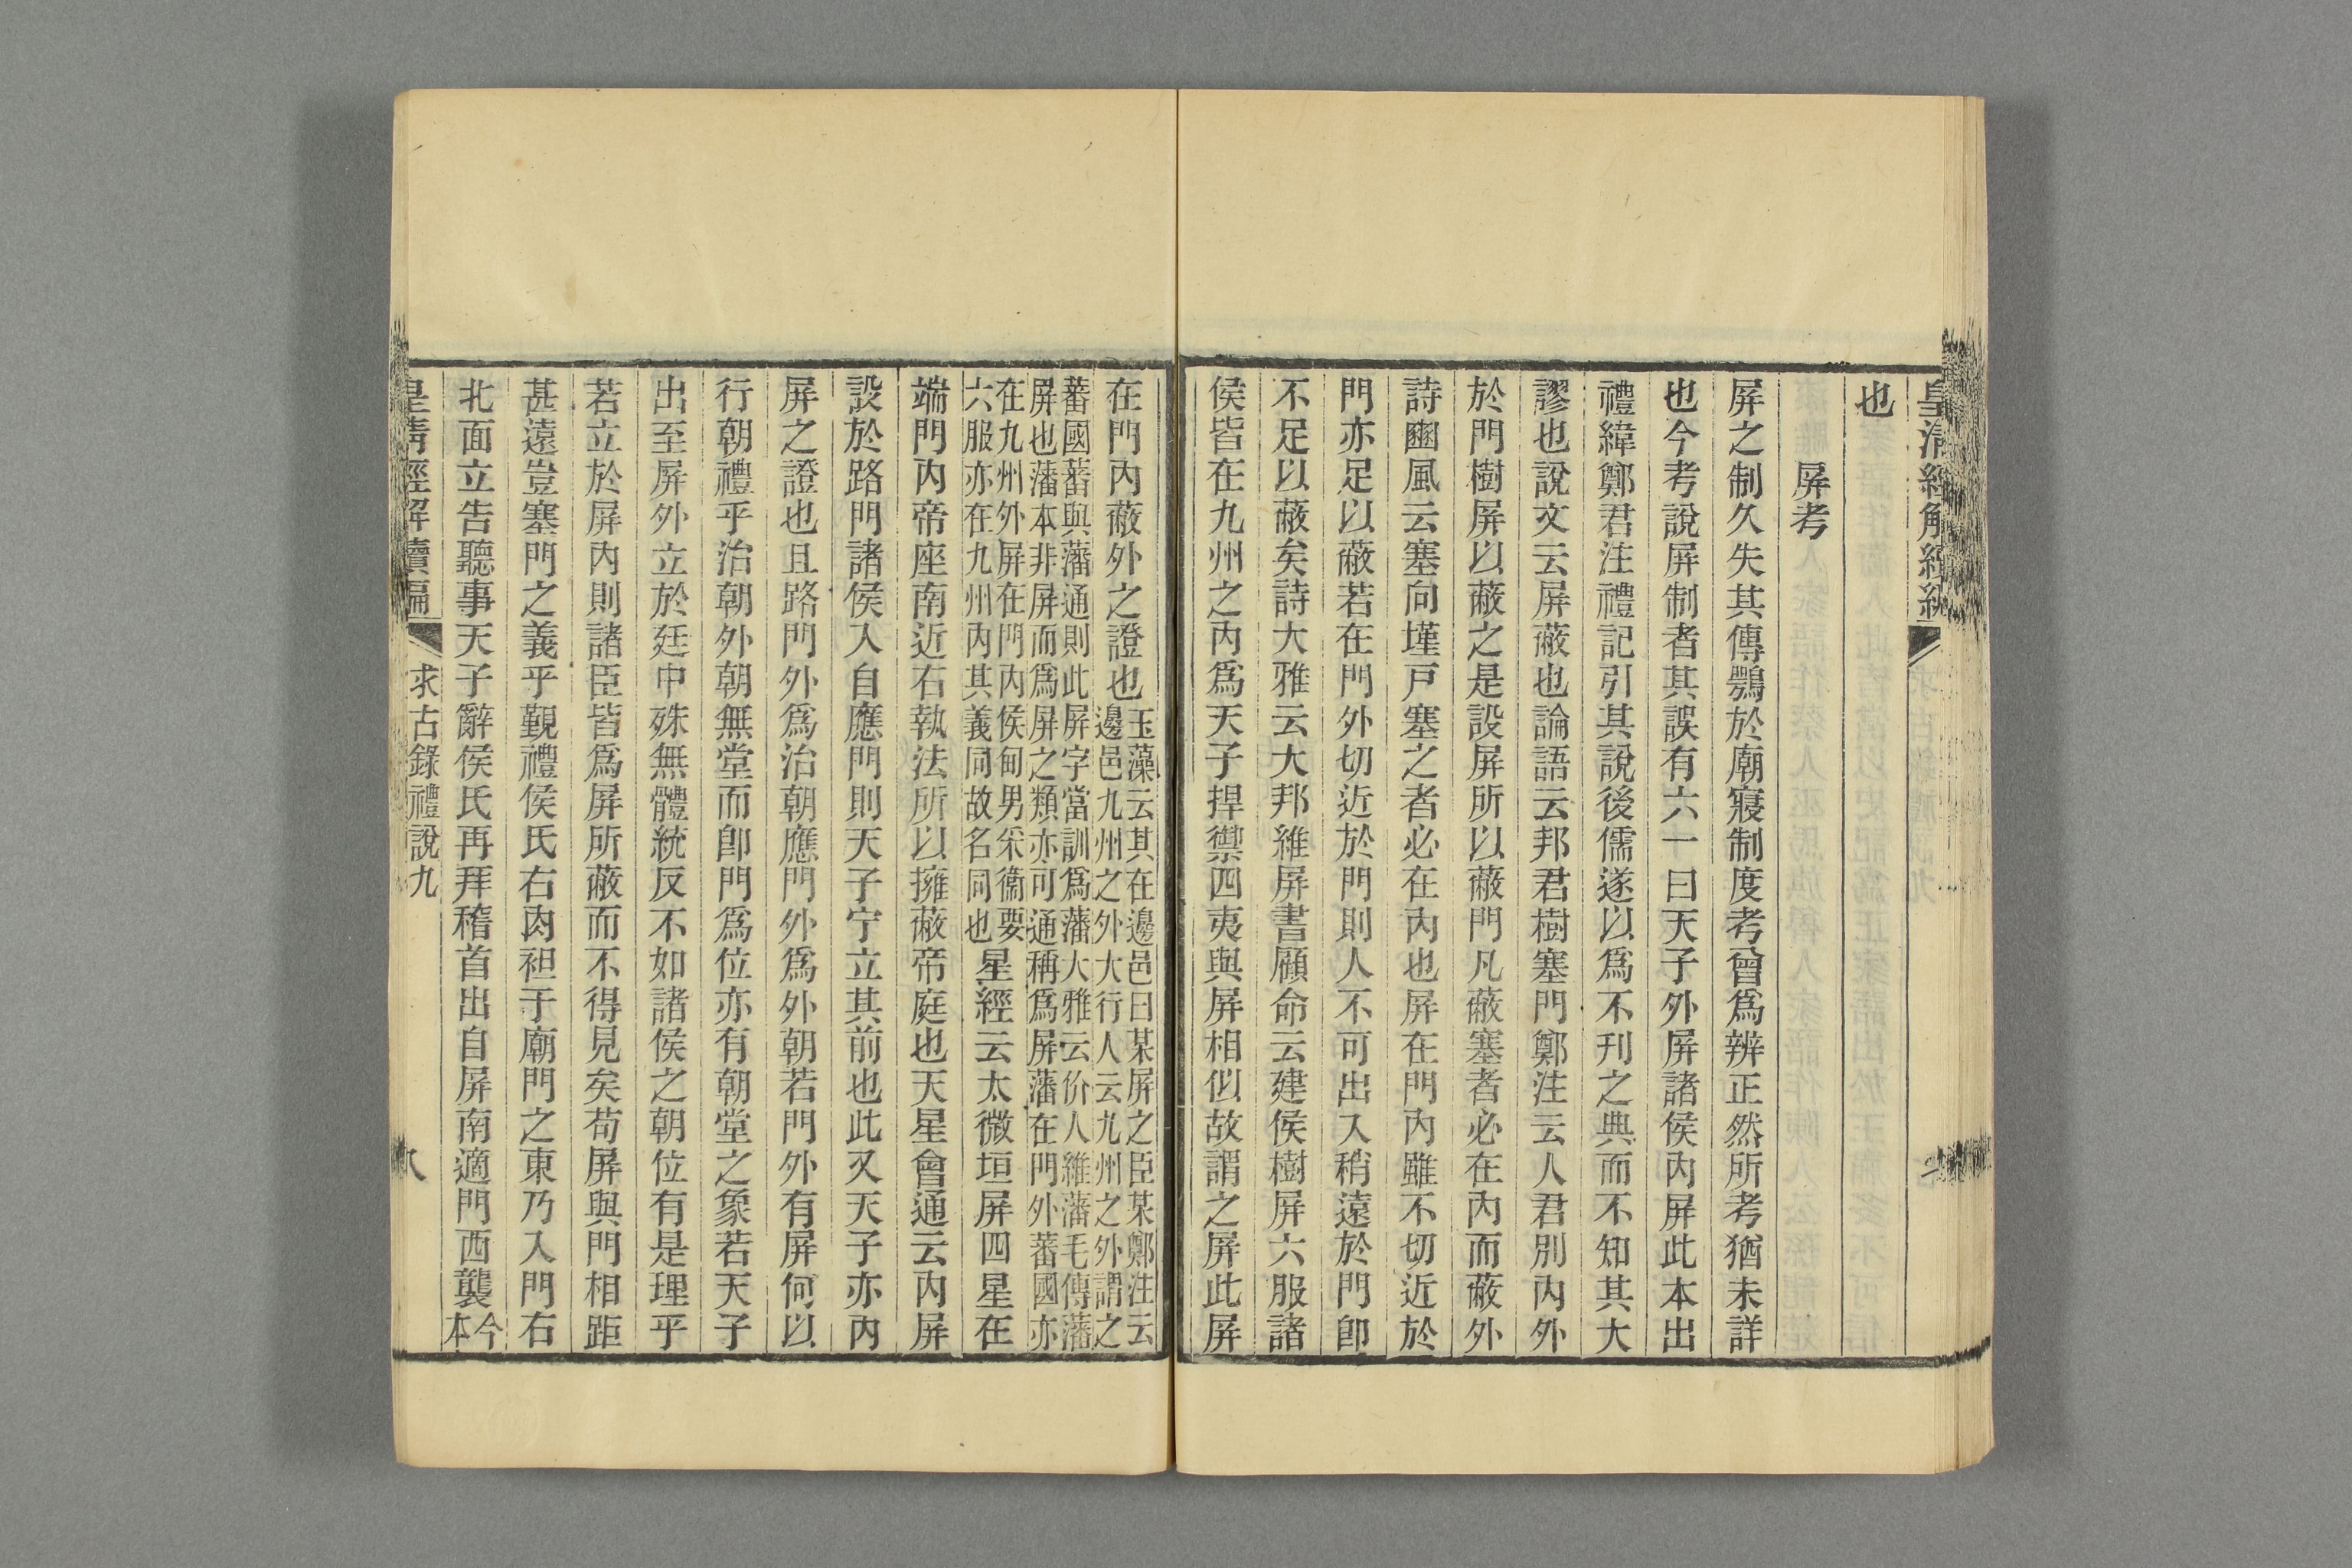 皇清經解續編
也
屏考
屏之制久失其傳鶚於廟寢制度考曾爲辨正然所考猶未詳
也今考說屏制者其誤有六一曰天子外屏諸侯內屏此本出
禮緯鄭君注禮記引其說後儒遂以爲不刊之典而不知其大
謬也說文云屏蔽也論語云邦君樹塞門鄭注云人君別內外
於門樹屏以蔽之是設屏所以蔽門凡蔽塞者必在內而蔽外
詩豳風云塞向墐戸塞之者必在內也屏在門內雖不切近於
門亦足以蔽若在門外切近於門則人不可出入稍遠於門卽
不足以蔽矣詩大雅云大邦維屏書顧命云建侯樹屏六服諸
侯皆在九州之內爲天子捍禦四夷與屏相似故謂之屏此屏
在門內蔽外之證也玉藻云其在邊邑曰某屏之臣某鄭注云
邊邑九州之外大行人云九州之外謂之
蕃國蕃與藩通則此屏字當訓爲藩大雅云价人維藩毛傳藩
屏也藩本非屏而爲屏之類亦可通稱爲屏藩在門外蕃國亦
在九州外屏在門內侯甸男采衞要
六服亦在九州內其義同故名同也星經云太微垣屏四星在
端門內帝座南近右執法所以擁蔽帝庭也天星會通云內屏
設於路門諸侯入自應門則天子宁立其前也此又天子亦內
屏之證也且路門外爲治朝應門外爲外朝若門外有屏何以
行朝禮乎治朝外朝無堂而卽門爲位亦有朝堂之象若天子
出至屏外立於廷中殊無體統反不如諸侯之朝位有是理乎
若立於屏內則諸臣皆爲屏所蔽而不得見矣苟屏與門相距
甚遠豈塞門之義乎覲禮侯氏右肉袒于廟門之東乃入門右
北面立告聽事天子辭侯氏再拜稽首出自屏南適門西襲今
本
皇清經解續編
求古錄禮說九
八